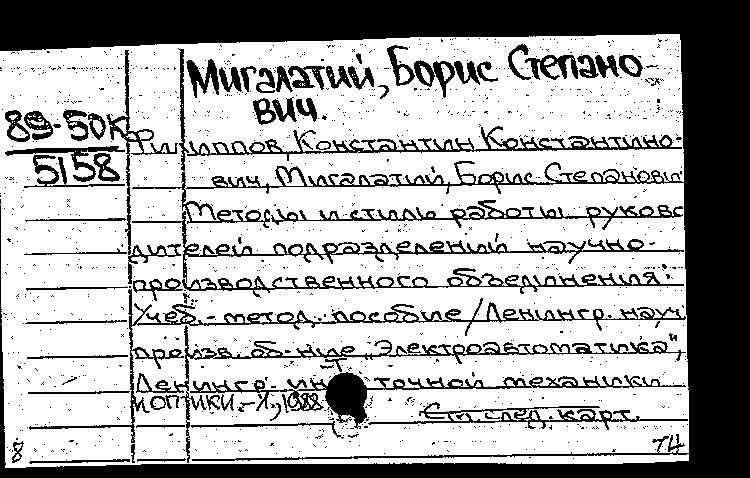 Мигалатий, Борис Степано-
вич.
89-50К
5158
Филиппов, Константин Константино-
вич, Мигалатий, Борис Степанович
Методы и стиль работы руково
дителей подразделений научно-
производственного объединения:
Учеб.-метод. пособие / Ленингр. науч
произв. об-ние „Электроавтоматика",
Ленингр. ин-т точной механики
и оптики. - Л., 1988
См. след. карт.
8
74